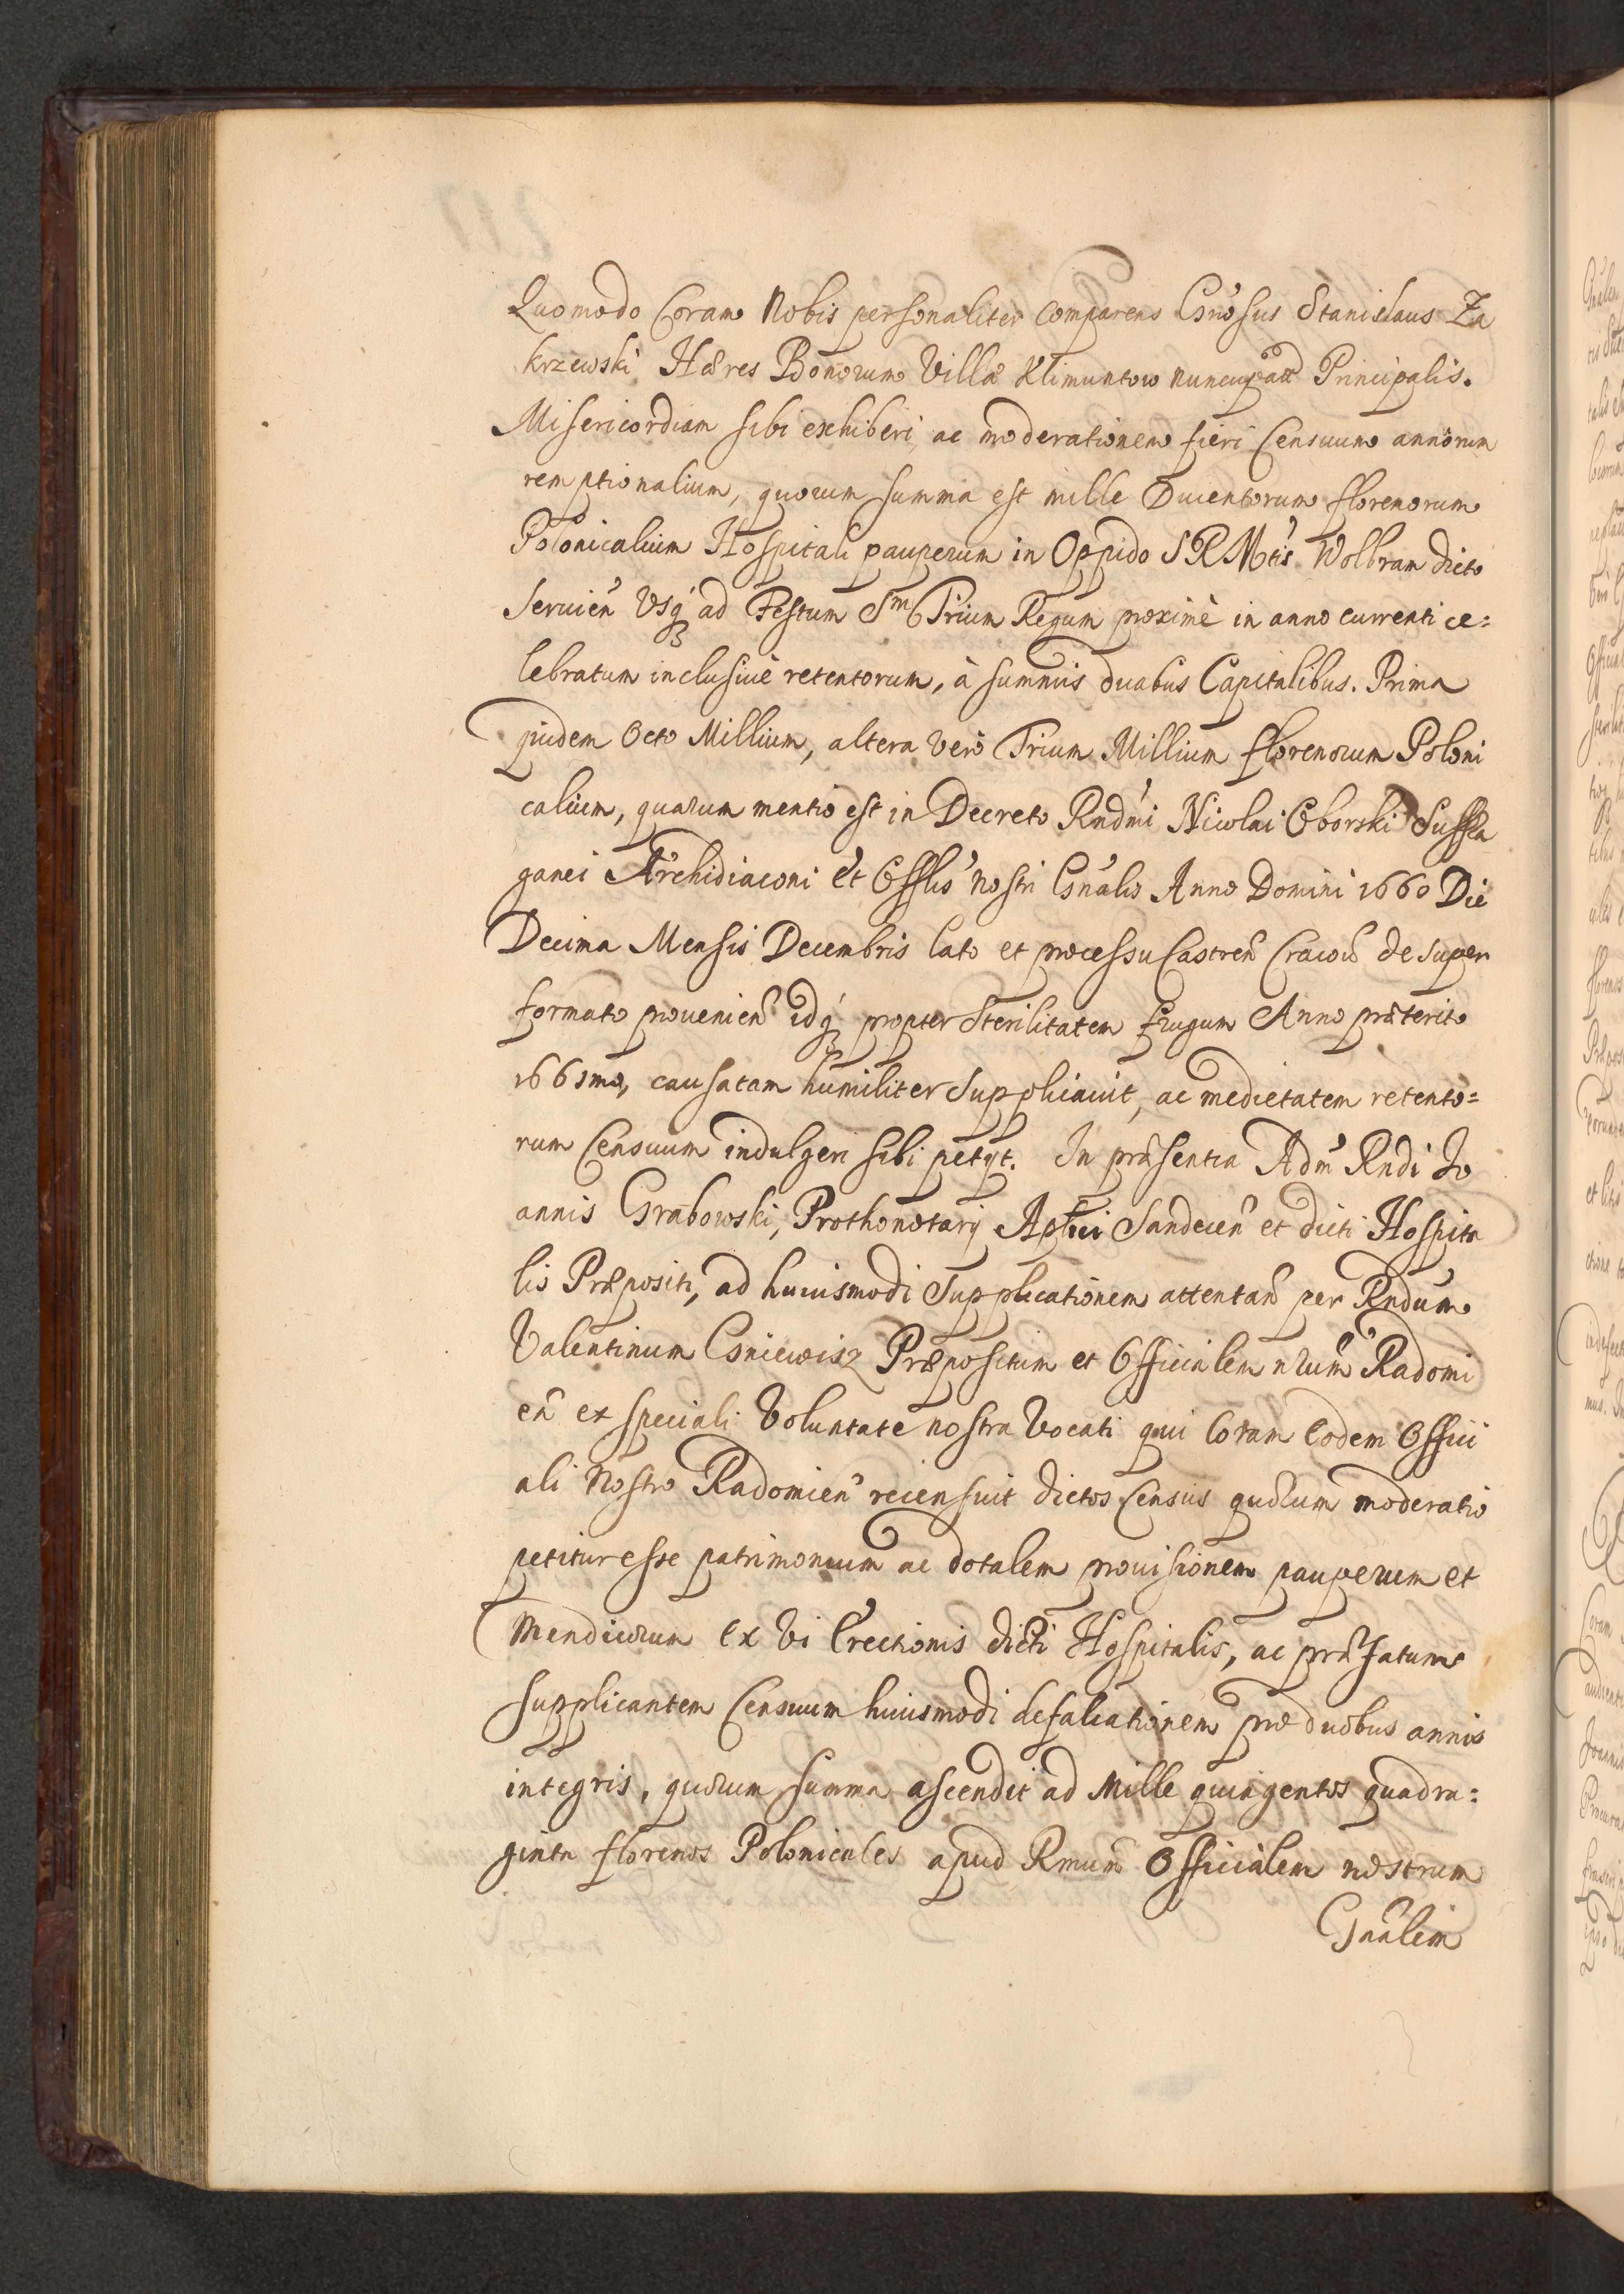 Quomodo Coram Nobis personaliter comparens Gnosus Stanislaus Za
krzewski Hæres Bonorum Villæ Klimuntow nuncupatæ Principalis.
Misericordiam sibi exhiberi, ac moderationem fieri Censuum annorum
remptionalium, quorum summa est mille Ducentorum florenorum
Polonicalium Hospitali pauperum in Oppido S R Mtis Wolbram dicto
seruien̄ Vsq̨ ad Festum Sm Trium Regum proximè in anno currenti ce=
lebratum inclusiuè retentorum, à summis duabus Capitalibus. Prima
quidem Octo Millium, altera verò Trium Millium florenorum Poloni
calium, quarum mentio est in Decreto Rndmi Nicolai Oborski Suffra
ganei Archidiaconi et Offlis nostri Gnalis Anno Domini 1660 Die
Decima Mensis Decembris lato et processu Castren̄ Cracou̅ de super
formato prouenien̄ idq̨ propter sterilitatem frugum Anno præterito
1661mo, causatam humiliter supplicauit, ac medietatem retento=
rum Censuum indulgeri sibi petyt. In præsentia Adm Rndi Jo
annis Grabowski, Prothonotarij Aplici Sandecen̄ et dicti Hospita
lis Præpositi, ad huiusmodi supplicationem attentan̄ per Rndum
Valentinum Gniewisz Præpositum et Officialem nrūm Radomi
en̄ ex speciali Voluntate nostra Vocati qui Coram Eodem Offici
ali Nostro Radomien̄ recensuit dictos Census quorum moderatio
petitur esse patrimonium ac dotalem prouisionem pauperum et
Mendicorum ex Vi Erectionis dicti Hospitalis, ac præfatum
supplicantem Censuum huiusmodi defalcationem pro duobus annis
integris, quorum summa ascendit ad Mille quingentos quadra=
ginta florenos Polonicales apud Rmum Officialem nostrum
Gnalem